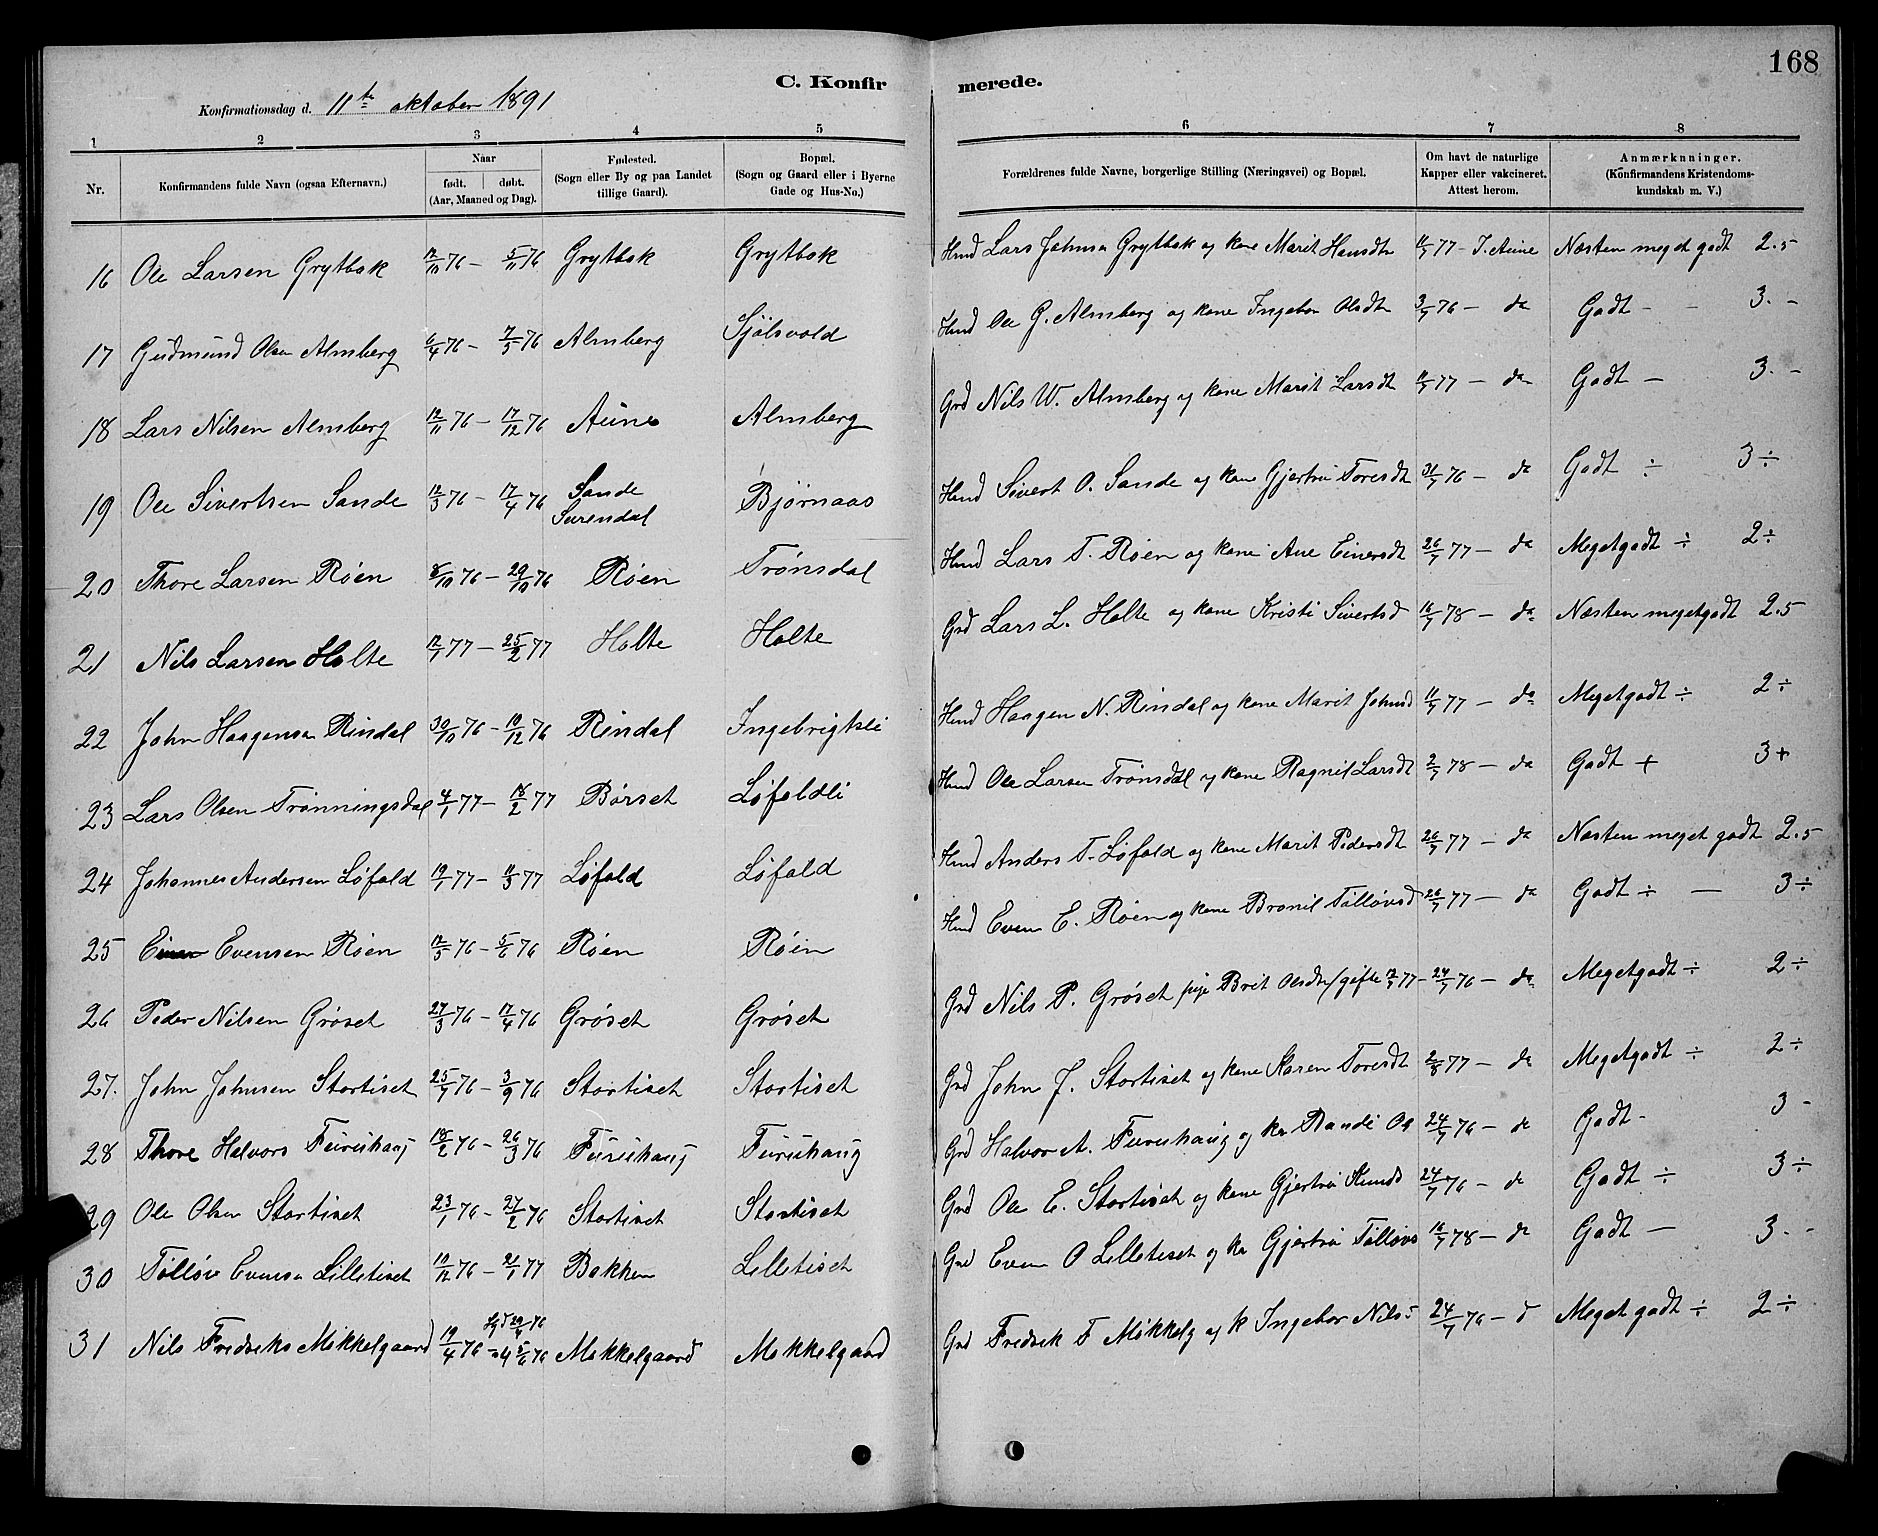 168
C. Konfirmerede.
Konfirmationsdag d. 11te oktober 1891
1 2 3 4 5 6 7 8
Nr. Konfirmandens fulde Navn (ogsaa Efternavn.) Naar født. døbt. (Aar, Maaned og Dag). Fødested. (Sogn eller By og paa Landet tillige Gaard). Bopæl. (Sogn og Gaard eller i Byerne Gade og Hus-No.) Forældrenes fulde Navne, borgerlige Stilling (Næringsvei) og Bopæl. Om havt de naturlige Kapper eller vakcineret. Attest herom. Anmærkninger. (Konfirmandens Kristendomskundskab m. V.)
16 Ole Larsen Grytbak 12/10 76 – 5/11 76 Grytbak Grytbak Hmd Lars Johnsn Grytbak og kone Marit Hansdtr 11/7 77 – I. Aune Næsten meget godt 2.5
17 Gudmund Olsen Almberg 6/4 76 – 7/5 76 Almberg Sjølsvold Hmd Ole G. Almberg og kone Ingebor Olsdt 3/7 76 – do Godt – 3. –
18 Lars Nilsen Almberg 12/11 76 – 17/12 76 Aune Almberg Grd Nils W. Almberg og kone Marit Larsdt 11/7 77 – do Godt – 3. –
19 Ole Sivertsen Sande 12/3 76 – 17/4 76 Sande Surendal Bjørnaas Hmd Sivert O. Sande og kone Gjertru Toresdt 31/7 76 – do Godt ÷ 3 ÷
20 Thore Larsen Røen 8/10 76 – 29/10 76 Røen Trønsdal Hmd Lars T. Røen og kone Ane Einersdt 26/7 77 – do Megetgodt ÷ 2 ÷
21 Nils Larsen Holte 12/1 77 – 25/2 77 Holte Holte Grd Lars L. Holte og kone Kristi Sivertsd 16/7 78 – do Næsten megetgodt 2.5
22 John Haagensn Rindal 30/10 76 – 10/12 76 Rindal Ingebrigtsli Hmd Haagen N. Rindal og kone Marit Johnsd 11/7 77 – do Megetgodt ÷ 2 ÷
23 Lars Olsen Trønningsdal 4/1 77 – 18/2 77 Børset Løfaldli Hmd Ole Larsen Trønsdal og kone Ragnil Larsdt 2/7 78 – do Godt + 3 +
24 Johannes Andersen Løfald 19/1 77 – 11/3 77 Løfald Løfald Hmd Anders T. Løfald og kone Marit Pedersdt 26/7 77 – do Næsten meget godt 2.5
25 Einer Evensen Røen 12/5 76 – 5/6 76 Røen Røen Hmd Even E. Røen og kone Bronil Tølløvsd 26/7 77 – do Godt ÷ – 3 ÷
26 Peder Nilsen Grøset 27/3 76 – 17/4 76 Grøset Grøset Grd Nils P. Grøset pige Brit Olsdtr (gifte 77 – 24/7 76 – do Megetgodt ÷ 2 ÷
27. John Johnsen Stortiset 25/7 76 – 3/9 76 Stortiset Stortiset Grd John J. Stortiset og kone Karen Toresdt 2/8 77 – do Megetgodt ÷ 2 ÷
28 Thore Halvors Furuhaug 18/2 76 – 26/3 76 Furuhaug Furuhaug Grd Halvor A. Furuhaug og ko Randi 24/7 76 – do Godt – 3 –
29 Ole Olsen Stortiset 23/1 76 – 27/2 76 Stortiset Stortiset Grd Ole E. Stortiset og kone Gjertru Knuds 24/7 76 – do Godt ÷ 3 ÷
30 Tølløv Evensn Lilletiset 10/12 76 – 21/1 77 Bakken Lilletiset Grd Even O Lilletiset og ko Gjertru Tølløvs 16/7 78 – do Godt – 3. –
31 Nils Fredriks Mikkelgaard 19/4 76 – 5/6 76 Mikkelgaard Mikkelgaard Grd Fredrik F Mikkelg og k Ingebor Nils 24/7 76 – d Meget godt ÷ 2 ÷